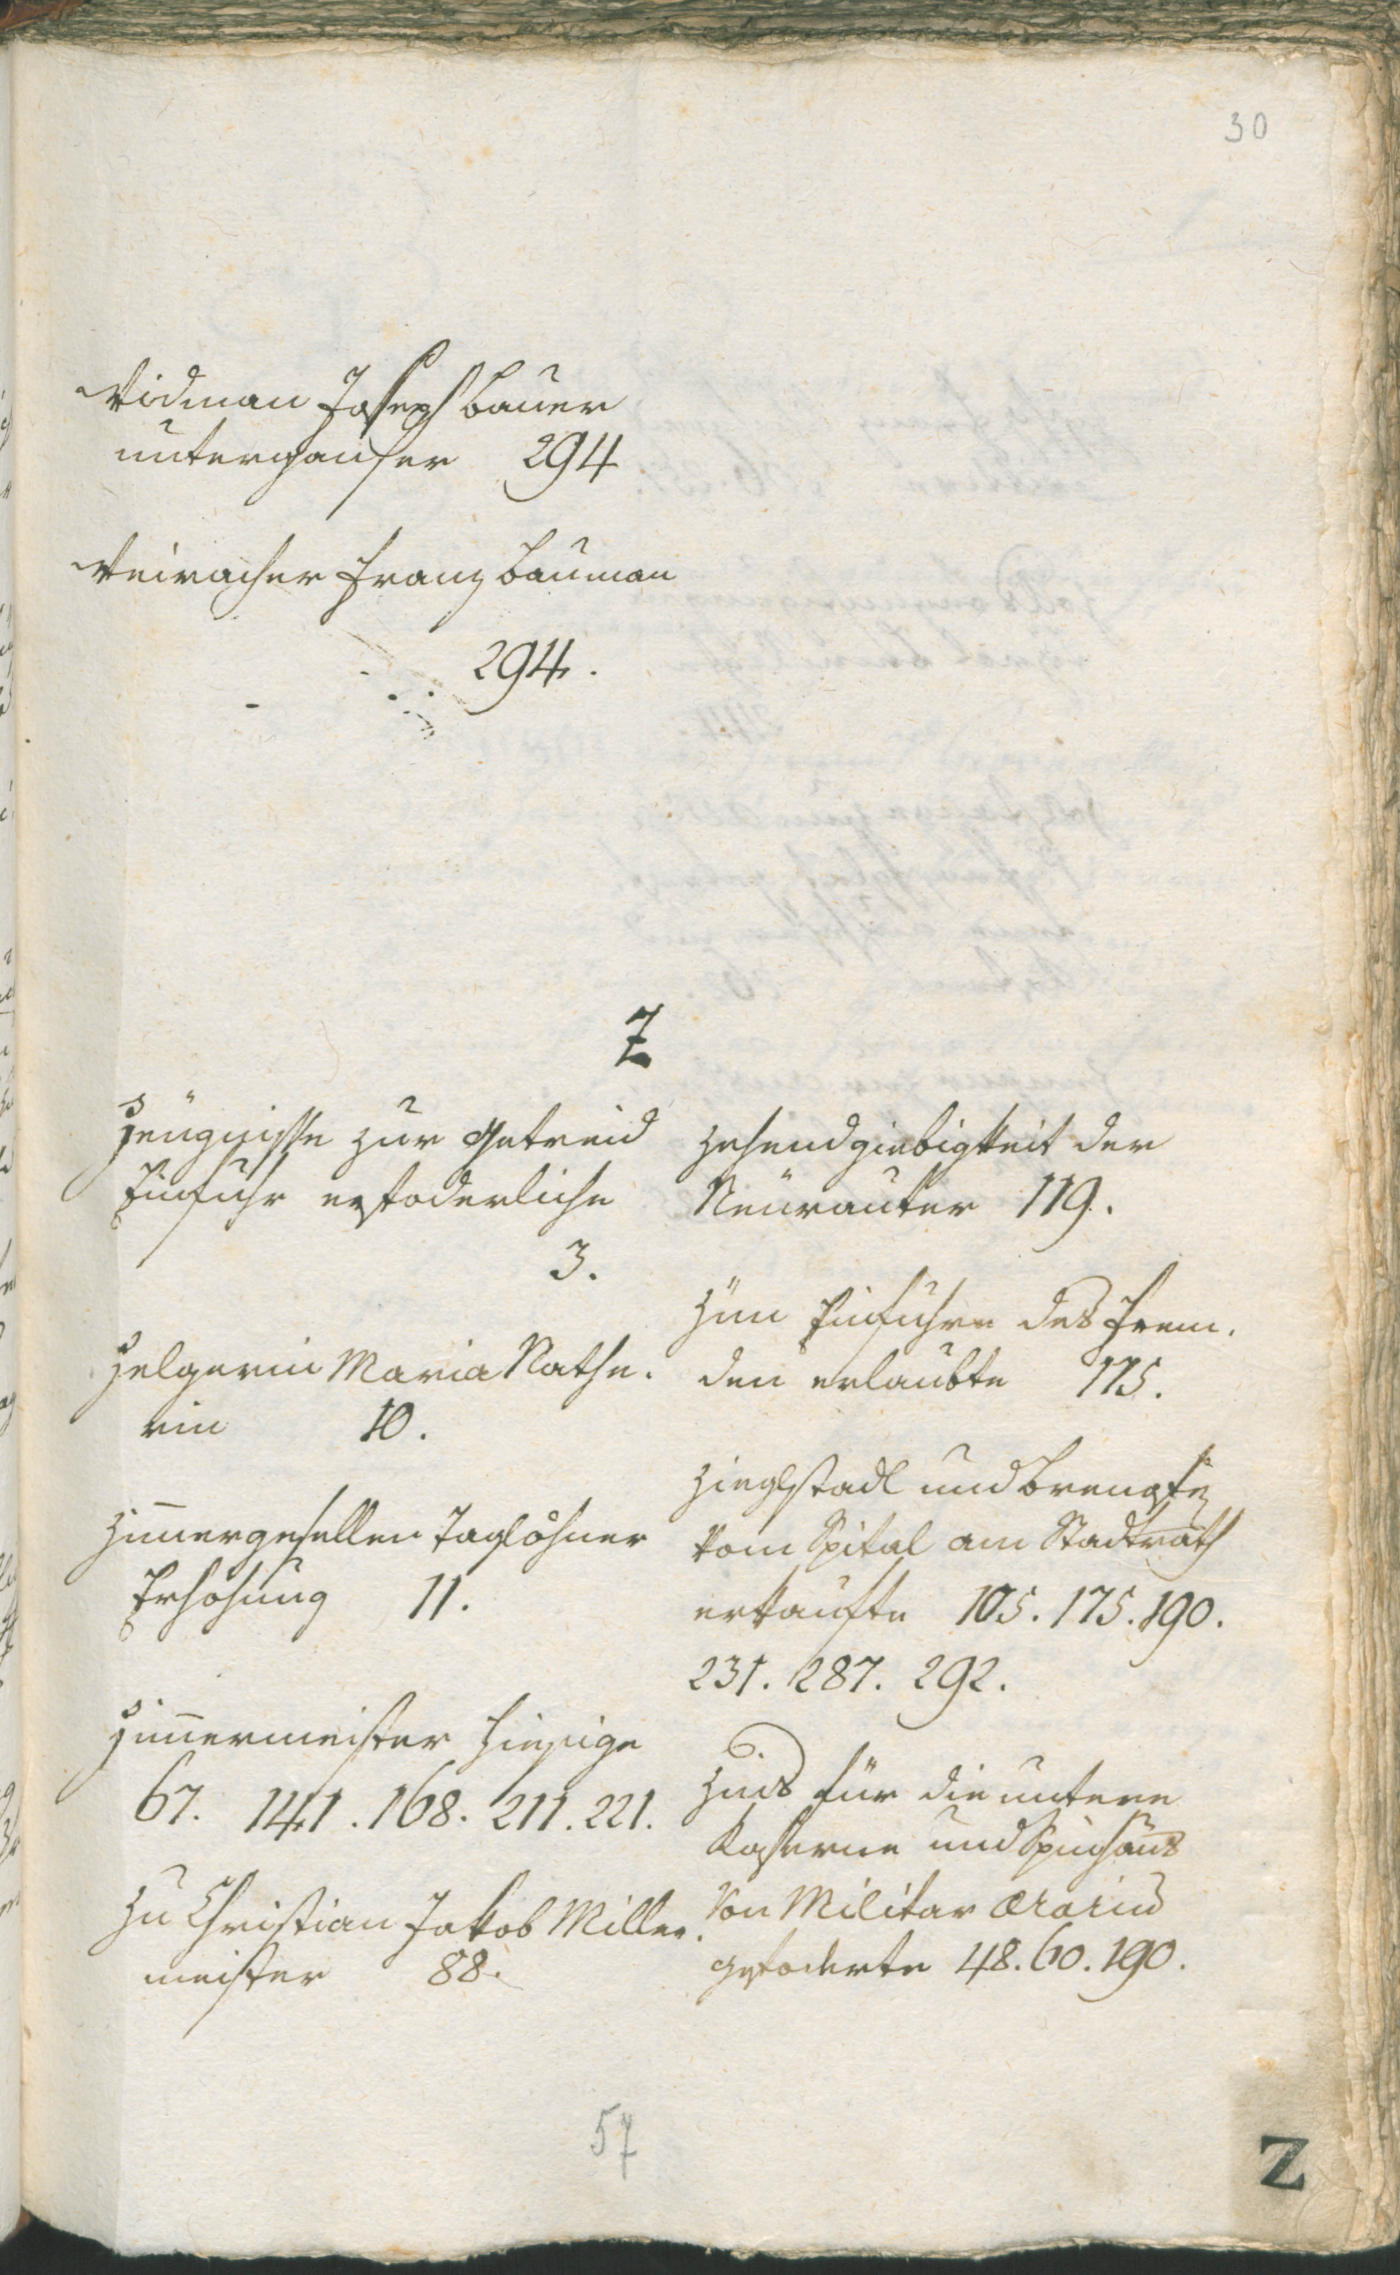 30
Widman Joseph Bauer
unterhauser 294
Weiracher Franz Bauman
294.
Z
Zeügnisse zur Getreid
Einfuhr erfoderliche
3.
Zelgerin Maria Kathe.
rin 10.
Zim̅ergesellen Taglöhner
Erhöhung 11.
Zim̅ermeister hiesige
67. 141. 168. 211. 221.
Zu Christian Jakob Miller.
meister 88.
Zehendgiebigkeit der
Neürauter 119.
Zum Einführen des frem.
den erlaubte 175.
Zieglstadl und
vom Spital am Stadtrath
erkaufte 105. 175. 190.
231. 287. 292.
Zins für die untere
Kaserne und Spinhaus
von Militar Ærario
gefoderte 48. 60. 190.
57
Z